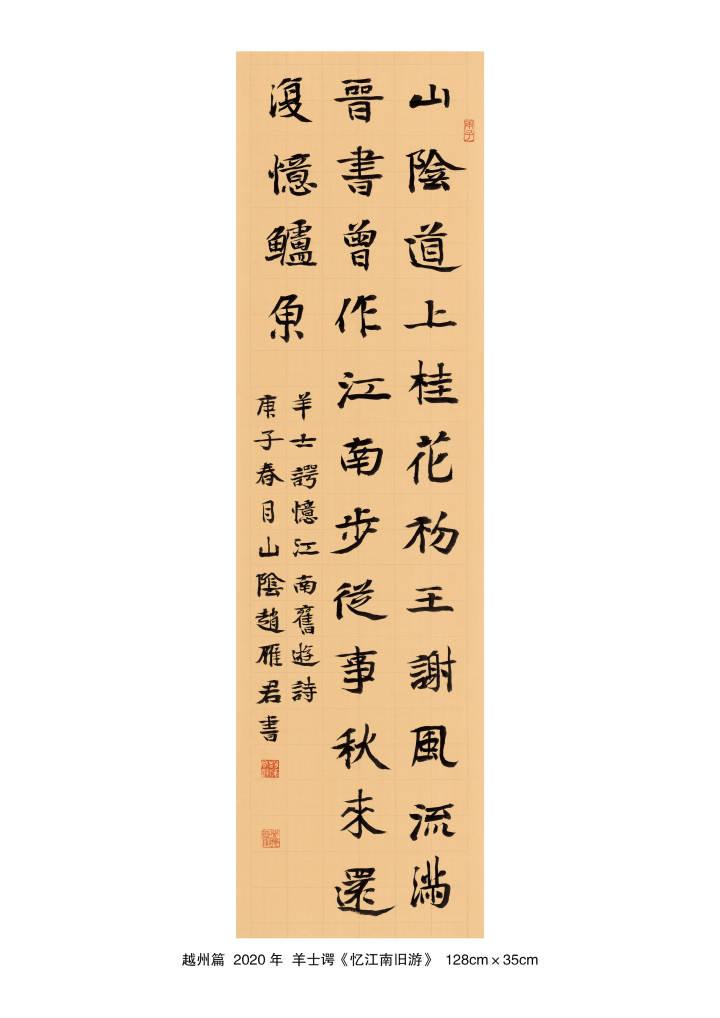 山陰道上桂花初王謝風流滿
晉書曾作江南步從事秋來還
復憶鱸魚
羊士諤憶江南舊遊詩
庚子春月山陰趙雁君書
越州篇 2020 年 羊士谔《忆江南旧游》 128cm×35cm